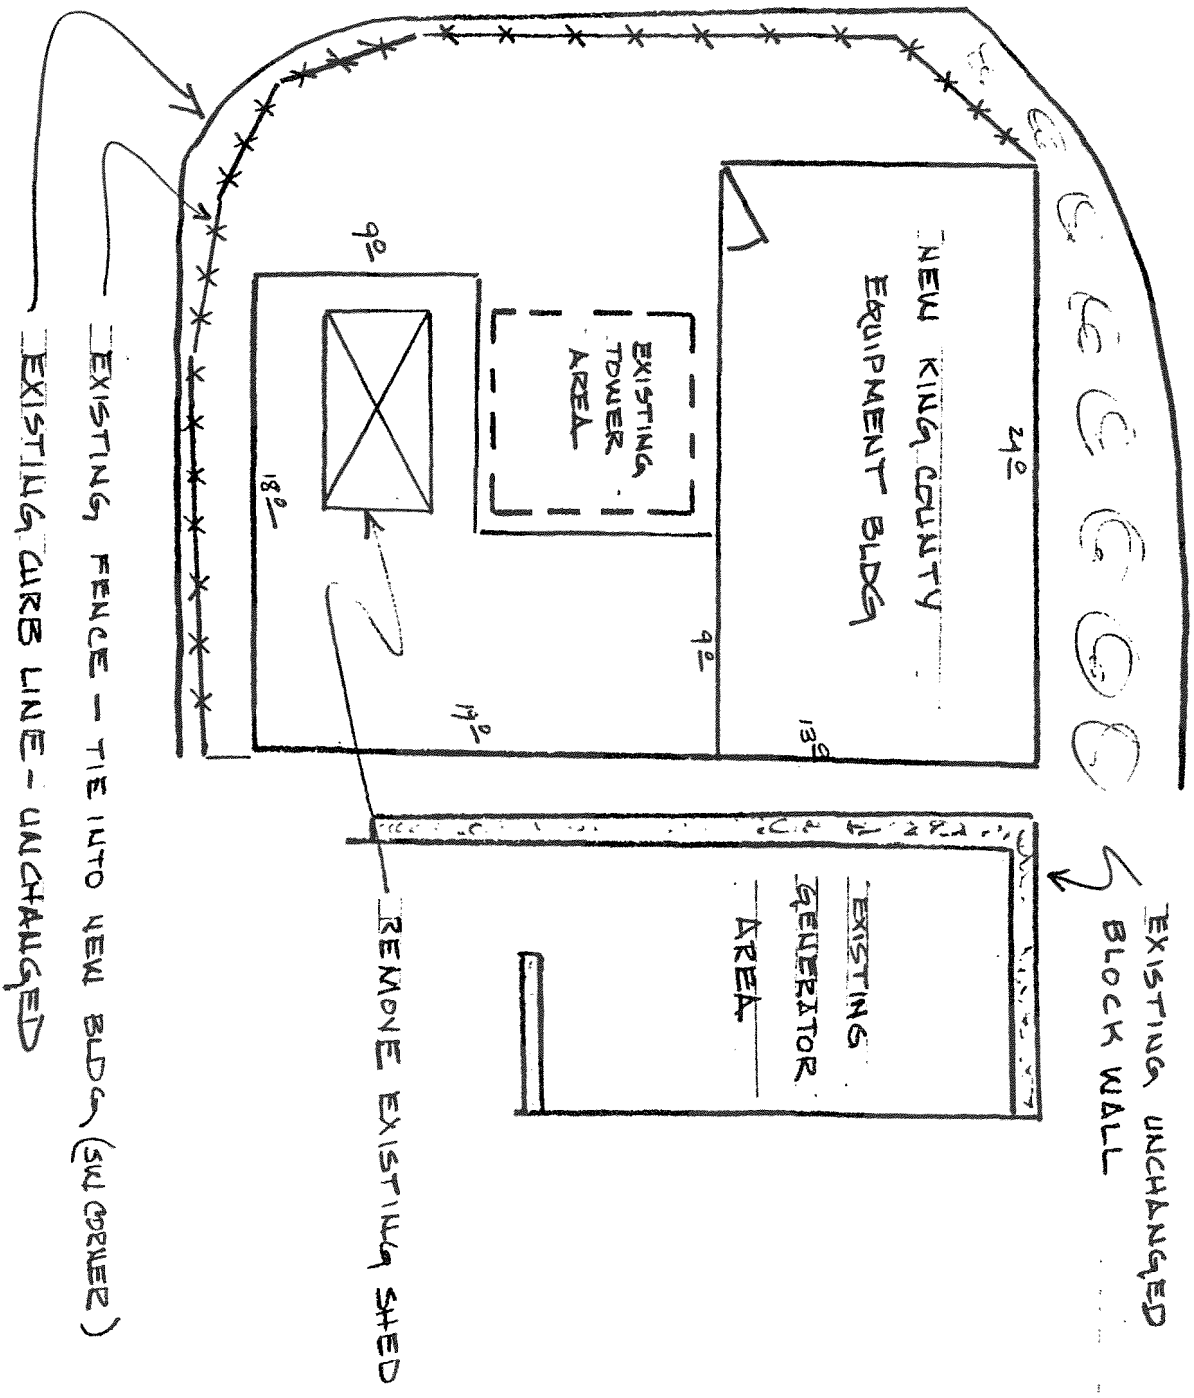 EXISTING UNCHANGED
BLOCK WALL
24⁰
NEW KING COUNTY
EQUIPMENT BLDG
13⁰
9⁰
EXISTING
TOWER
AREA
EXISTING
GENERATOR
AREA
9⁰
19⁰
18⁰
REMOVE EXISTING SHED
EXISTING FENCE - TIE INTO NEW BLDG (SW CORNER)
EXISTING CURB LINE - UNCHANGED